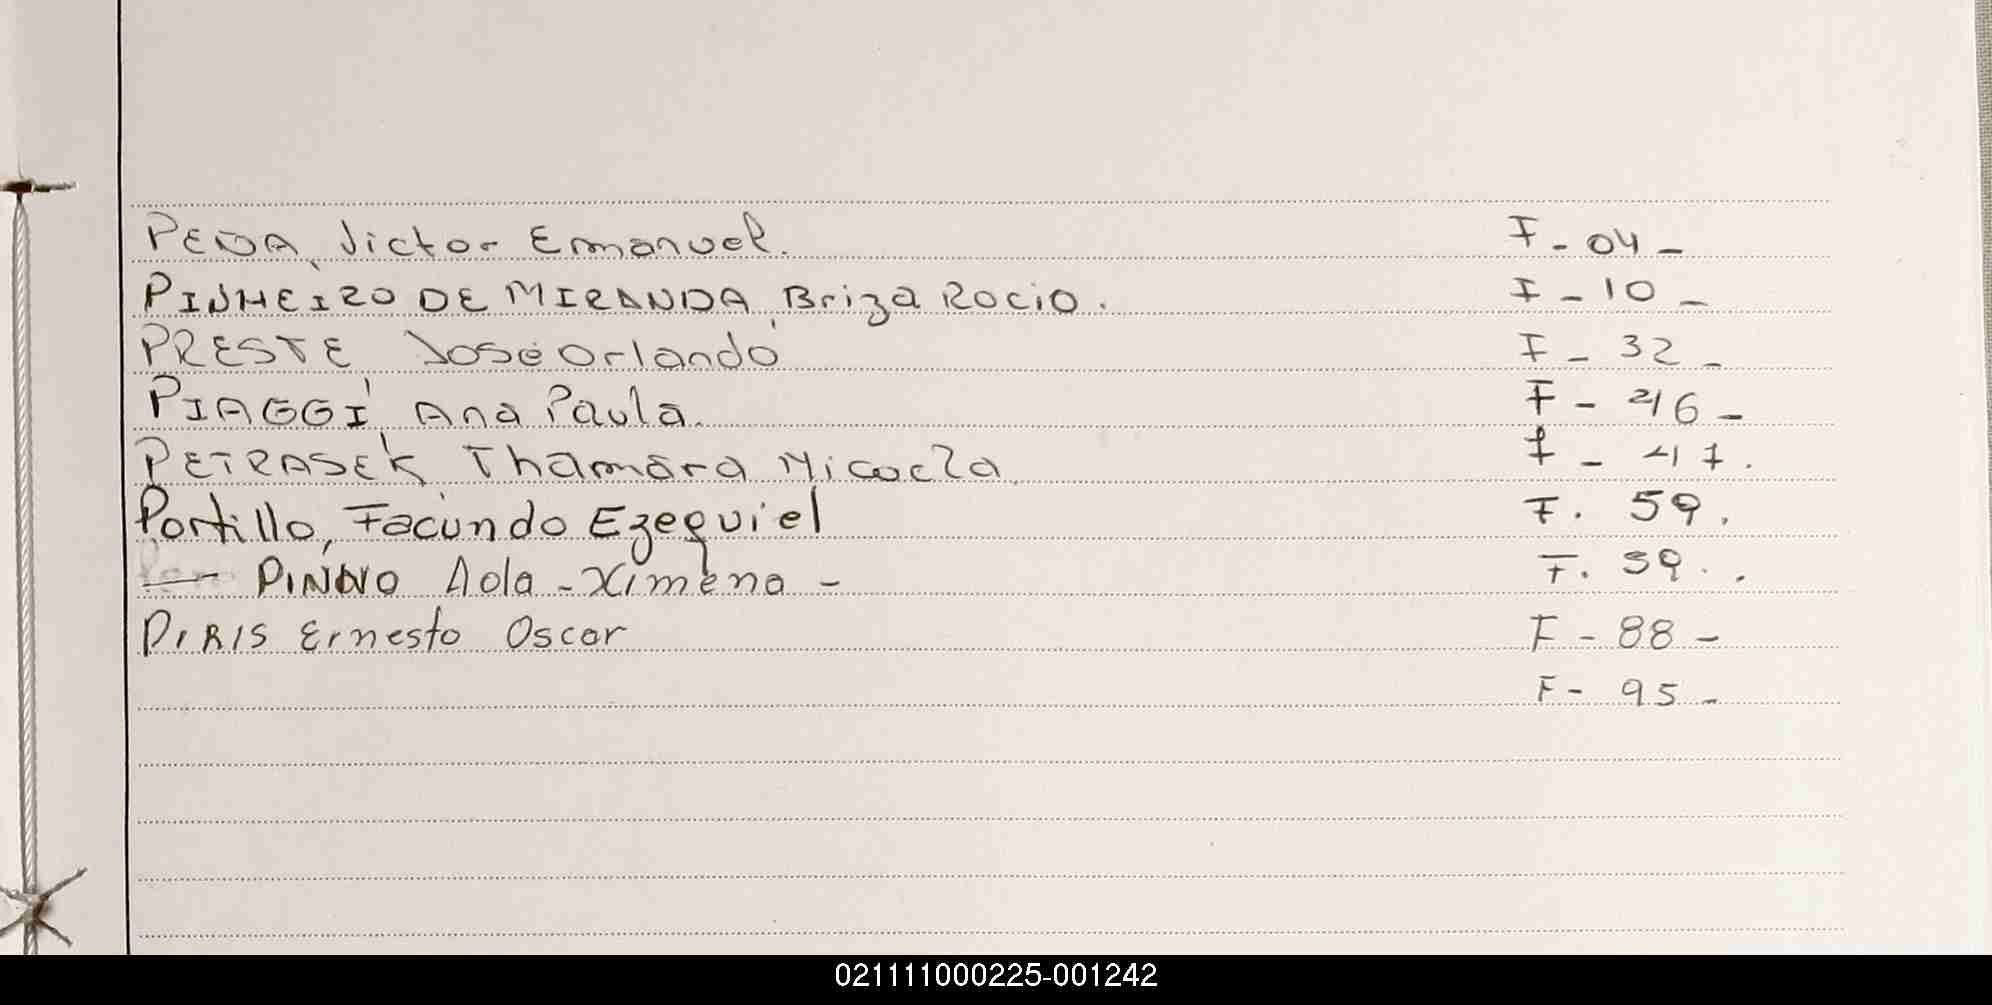 PEÑA, Victor Emanuel. F - 04 -
PINHEIRO DE MIRANDA, Briza Rocio. F - 10 -
PRESTE, José Orlando F - 32 -
PIAGGI, Ana Paula. F - 46 -
PETRASEK Thamara Micaela F - 47.
Portillo, Facundo Ezequiel F. 59.
— PINNO Aola - Ximena - F. 59..
PIRIS Ernesto Oscar F - 88 -
F - 95 -
021111000225-001242